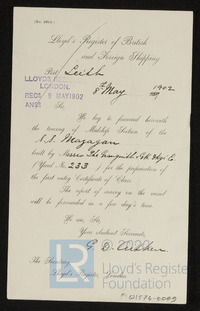 Lloyd's Register of British
and Foreign Shipping
Port Leith
8th May 1902
LLOYDS REG
LONDON.
RECD 9 MAY 1902
ANSD
Sir,
We beg to forward herewith
the tracing of Midship Section of the
S.S. Mazagan
built by Messrs
(Yard No. 233) for the preparation of
the first entry Certificate of Class.
The report of survey on the vessel
will be forwarded in a few day's time.
We are, Sir,
Your obedient Servants,
The Secretary
Lloyd's Register, London
Lloyd's Register
Foundation